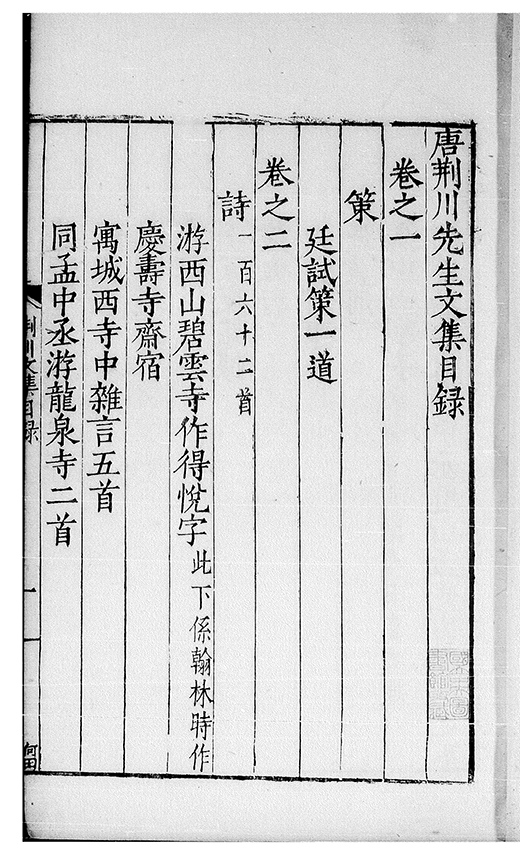 唐荆川先生文集目録
卷之一
策
廷試策一道
卷之二
詩一百六十二首
游西山碧雲寺作得悅字此下係翰林時作
慶壽寺齋宿
寓城西寺中雜言五首
同孟中丞游龍泉寺二首
荆川文集目録
一